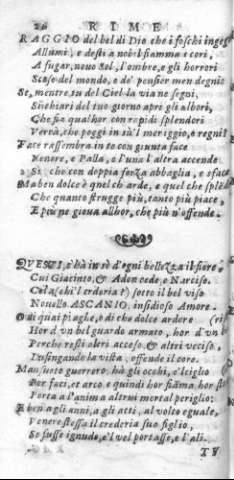 26 RIME
RAGGIO del bel di Dio che i foschi inge
Allumi, e desti a nobil fiamma i cori,
A fugar, nouo Sol, l'ombre, e gli horrori
Sceso del mondo, e de' pensier men degni:
Se, mentre tu del Ciel la via ne segni,
Schiari del tuo giorno apri gli albori,
Che fia qualhor con rapidi splendori
Verrà, che poggi in sù'l meriggio, e regni?
Face rassembra in te con giunta face
Venere, e Palla, e l'una l'altra accende
Sì, che con doppia forza abbaglia, e sface
Ma ben dolce è quel ch'arde, e quel che splende
Che quanto strugge più, tanto più piace
E più ne gioua allhor, che più n'offende.
QUESTI, c'hà in sè d'ogni bellezza il fiore
Cui Giacinto, & Adon cede, e Narciso.
Cela (chi'l crderia?) sotto il bel viso
Nouello ASCANIO, insidioso Amore.
O di quai piaghe, o di che dolce ardore
Hor d'un bel guardo armato, hor d'un
Perche resti altri acceso, & altri vcciso,
Lusingando la vista, offende il core.
Mansueto guerrero: hà gli occhi, e'l ciglio
Per faci, et arco e quindi hor fiāma hor st
Porta a l'anima altrui mortal periglio:
E ben a gli anni, a gli atti, al volto eguale,
Venere stessa il crederia suo figlio,
Se fusse ignudo, e'l vel portasse, e l'ali.
TV